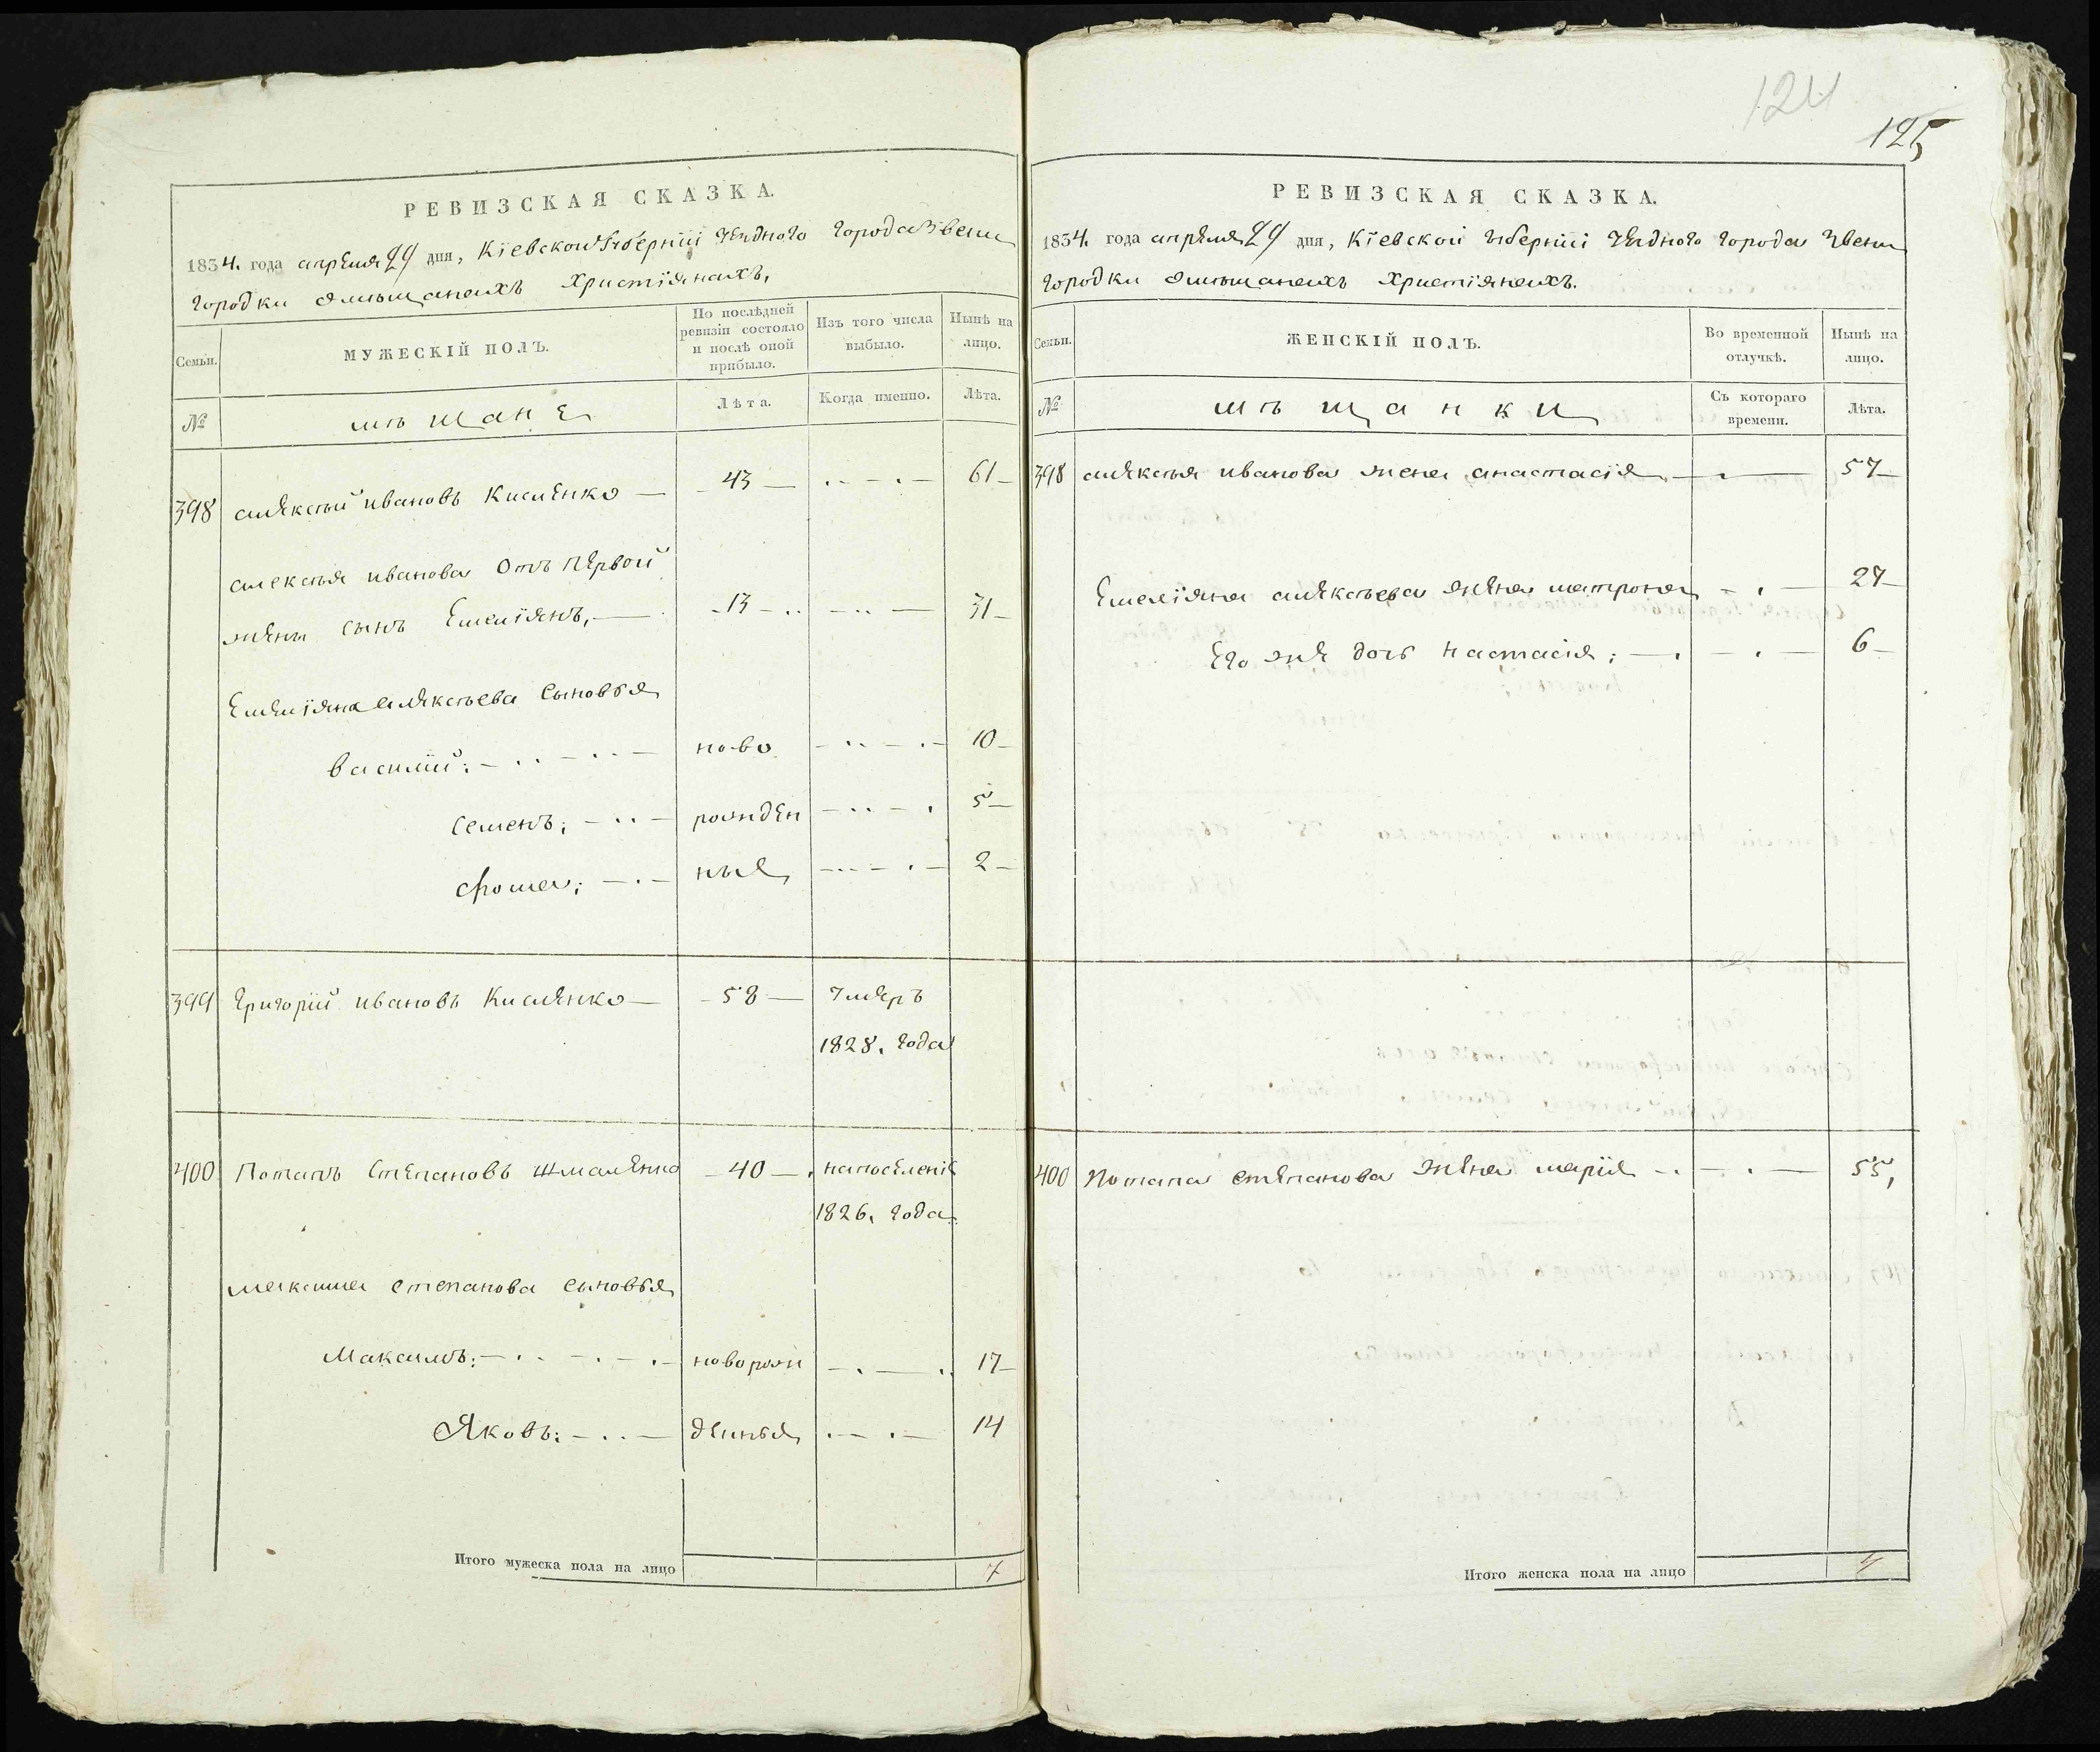 124
125
РЕВИЗСКАЯ СКАЗКА.
1834. года апреля 24 дня, Кіевской Губерніи уездного города Звени
городки омѣщанахъ христіянахъ,
Семьи.
МУЖЕСКІЙ ПОЛЪ.
По послѣдней ревизіи состояло и послѣ оной прибыло.
Изъ того числа выбыло.
Нынѣ на лицо.
№
мѣщане
Лѣта.
Когда именно.
Лѣта.
398 алексѣй ивановъ Кисленко — 43 — 61
алексѣя иванова отъ первой
жены сынъ Емеліянъ, — 13 — 31
Емеліяна алексѣева сыновья
василій: ново 10
семенъ: рожден 5
фома: ные 2
399 григорій ивановъ Кисленко — 58 — умеръ
1828. года
400 Потапъ степановъ — 40 — напоселеніе
1826. года
максима степанова сыновья
Максимъ: ноборож 17
Яковъ: денные 14
Итого мужеска пола на лицо 7
РЕВИЗСКАЯ СКАЗКА.
1834. года апреля 24 дня, Кіевской губерніи уездного города Звени
городки омѣщанахъ христіянахъ.
Семьи.
ЖЕНСКІЙ ПОЛЪ.
Во временной отлучкѣ.
Нынѣ на лицо.
№
мѣщанки
Съ котораго времени.
Лѣта.
398 алексѣя иванова жена анастасія 57
Емеліяна алексѣева жена матрона 27
его же дочь настасія: 6
400 Потапа степанова жена марія 55,
Итого женска пола на лицо 4